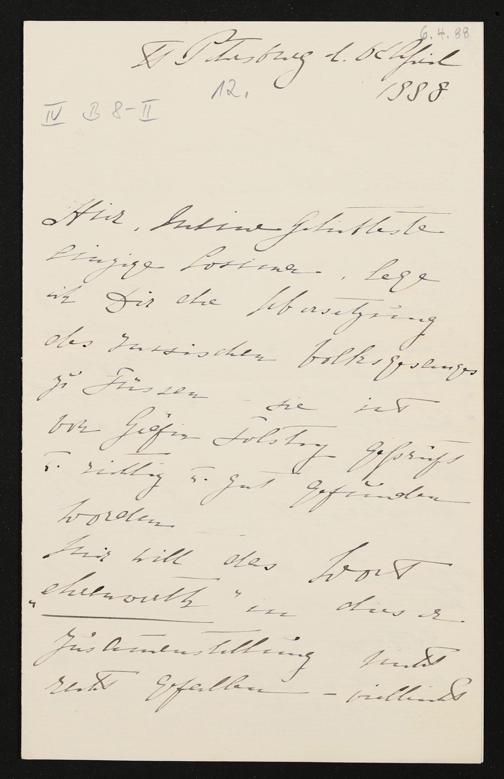 6.4.88
St Petersburg d. 6t April
12. 1888
IV B 8-II
Hier, meine Geliebteste
einzige Cosima, lege
ich Dir die Übersetzung
des russischen Volksgesanges
zu Füssen – sie ist
von Gräfin Tolstoy geprüft
u. richtig u. gut gefunden
worden
Mir will das Wort
"ehrenwerth" in dieser
Zusammenstellung nicht
recht gefallen – vielleicht